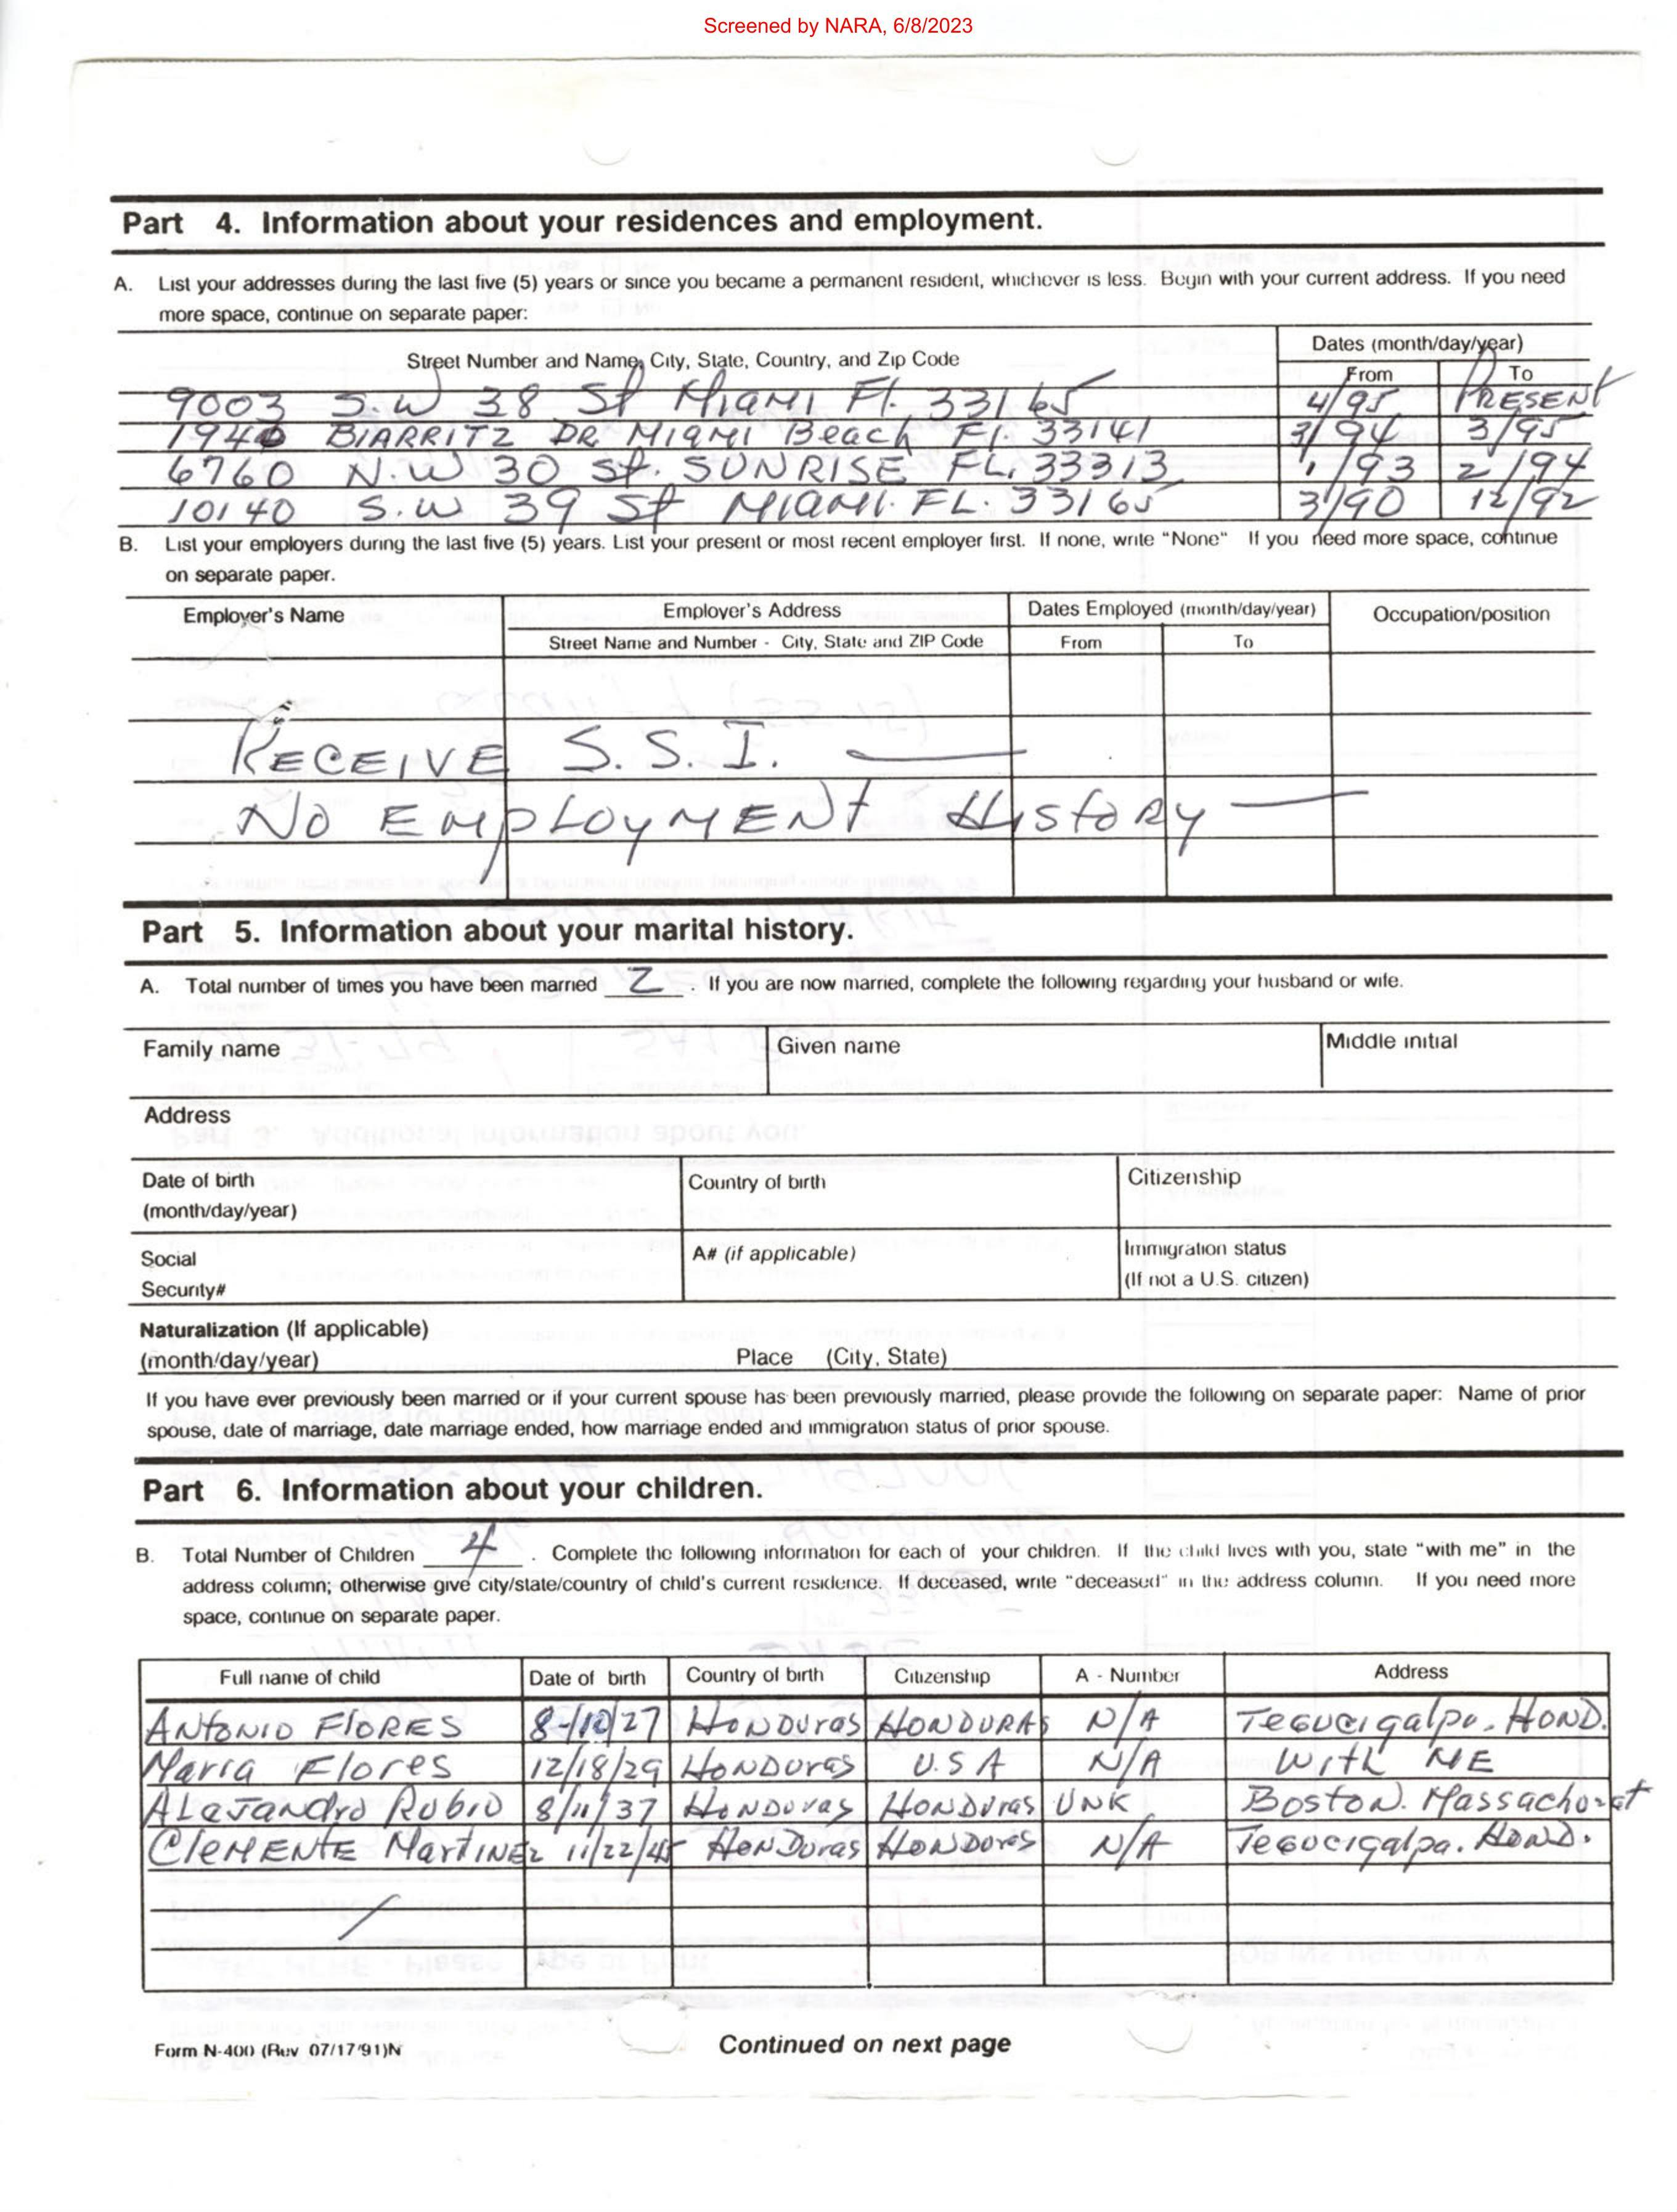 Screened by NARA, 6/8/2023
Part 4. Information about your residences and employment.
A. List your addresses during the last five (5) years or since you became a permanent resident, whichever is less. Begin with your current address. If you need
more space, continue on separate paper:
Street Number and Name, City, State, Country, and Zip Code
Dates (month/day/year)
From To
9003 S.W 38 St Miami Fl. 33165 4/95 PRESENT
1940 BIARRITZ DR MIAMI Beach Fl. 33141 3/94 3/95
6760 N.W 30 St. SUNRISE FL. 33313 1/93 2/94
10140 S.W 39 St MIAMI. FL. 33165 3/90 12/92
B. List your employers during the last five (5) years. List your present or most recent employer first. If none, write "None" If you need more space, continue
on separate paper.
Employer's Name Employer's Address Dates Employed (month/day/year) Occupation/position
Street Name and Number - City, State and ZIP Code From To
RECEIVE S.S.I. —
No EMPLOYMENT HIStORY —
Part 5. Information about your marital history.
A. Total number of times you have been married 2 . If you are now married, complete the following regarding your husband or wife.
Family name Given name Middle initial
Address
Date of birth Country of birth Citizenship
(month/day/year)
Social A# (if applicable) Immigration status
Security# (If not a U.S. citizen)
Naturalization (If applicable)
(month/day/year) Place (City, State)
If you have ever previously been married or if your current spouse has been previously married, please provide the following on separate paper: Name of prior
spouse, date of marriage, date marriage ended, how marriage ended and immigration status of prior spouse.
Part 6. Information about your children.
B. Total Number of Children 4 . Complete the following information for each of your children. If the child lives with you, state "with me" in the
address column; otherwise give city/state/country of child's current residence. If deceased, write "deceased" in the address column. If you need more
space, continue on separate paper.
Full name of child Date of birth Country of birth Citizenship A - Number Address
ANtONIO FlORES 8-/10/27 HONDUras HONDURAS N/A Tegucigalpa. HOND.
Maria Flores 12/18/29 HONDUras U.S A N/A With ME
ALeJandro Rubio 8/11/37 HONDUras HONDUras UNK Boston. Massachoset
CleMENtE MartINEz 11/22/45 HONDuras HONDUras N/A Tegucigalpa. HOND.
Form N-400 (Rev 07/17/91)N Continued on next page